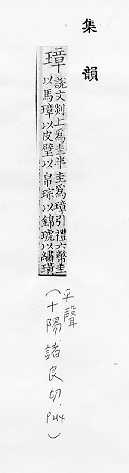 集韻
璋 說文剡上為圭半圭為璋引禮六幣圭
以馬璋以皮璧以帛琮以錦琥以繡璜
平聲
(十陽.諸良切.P.44)